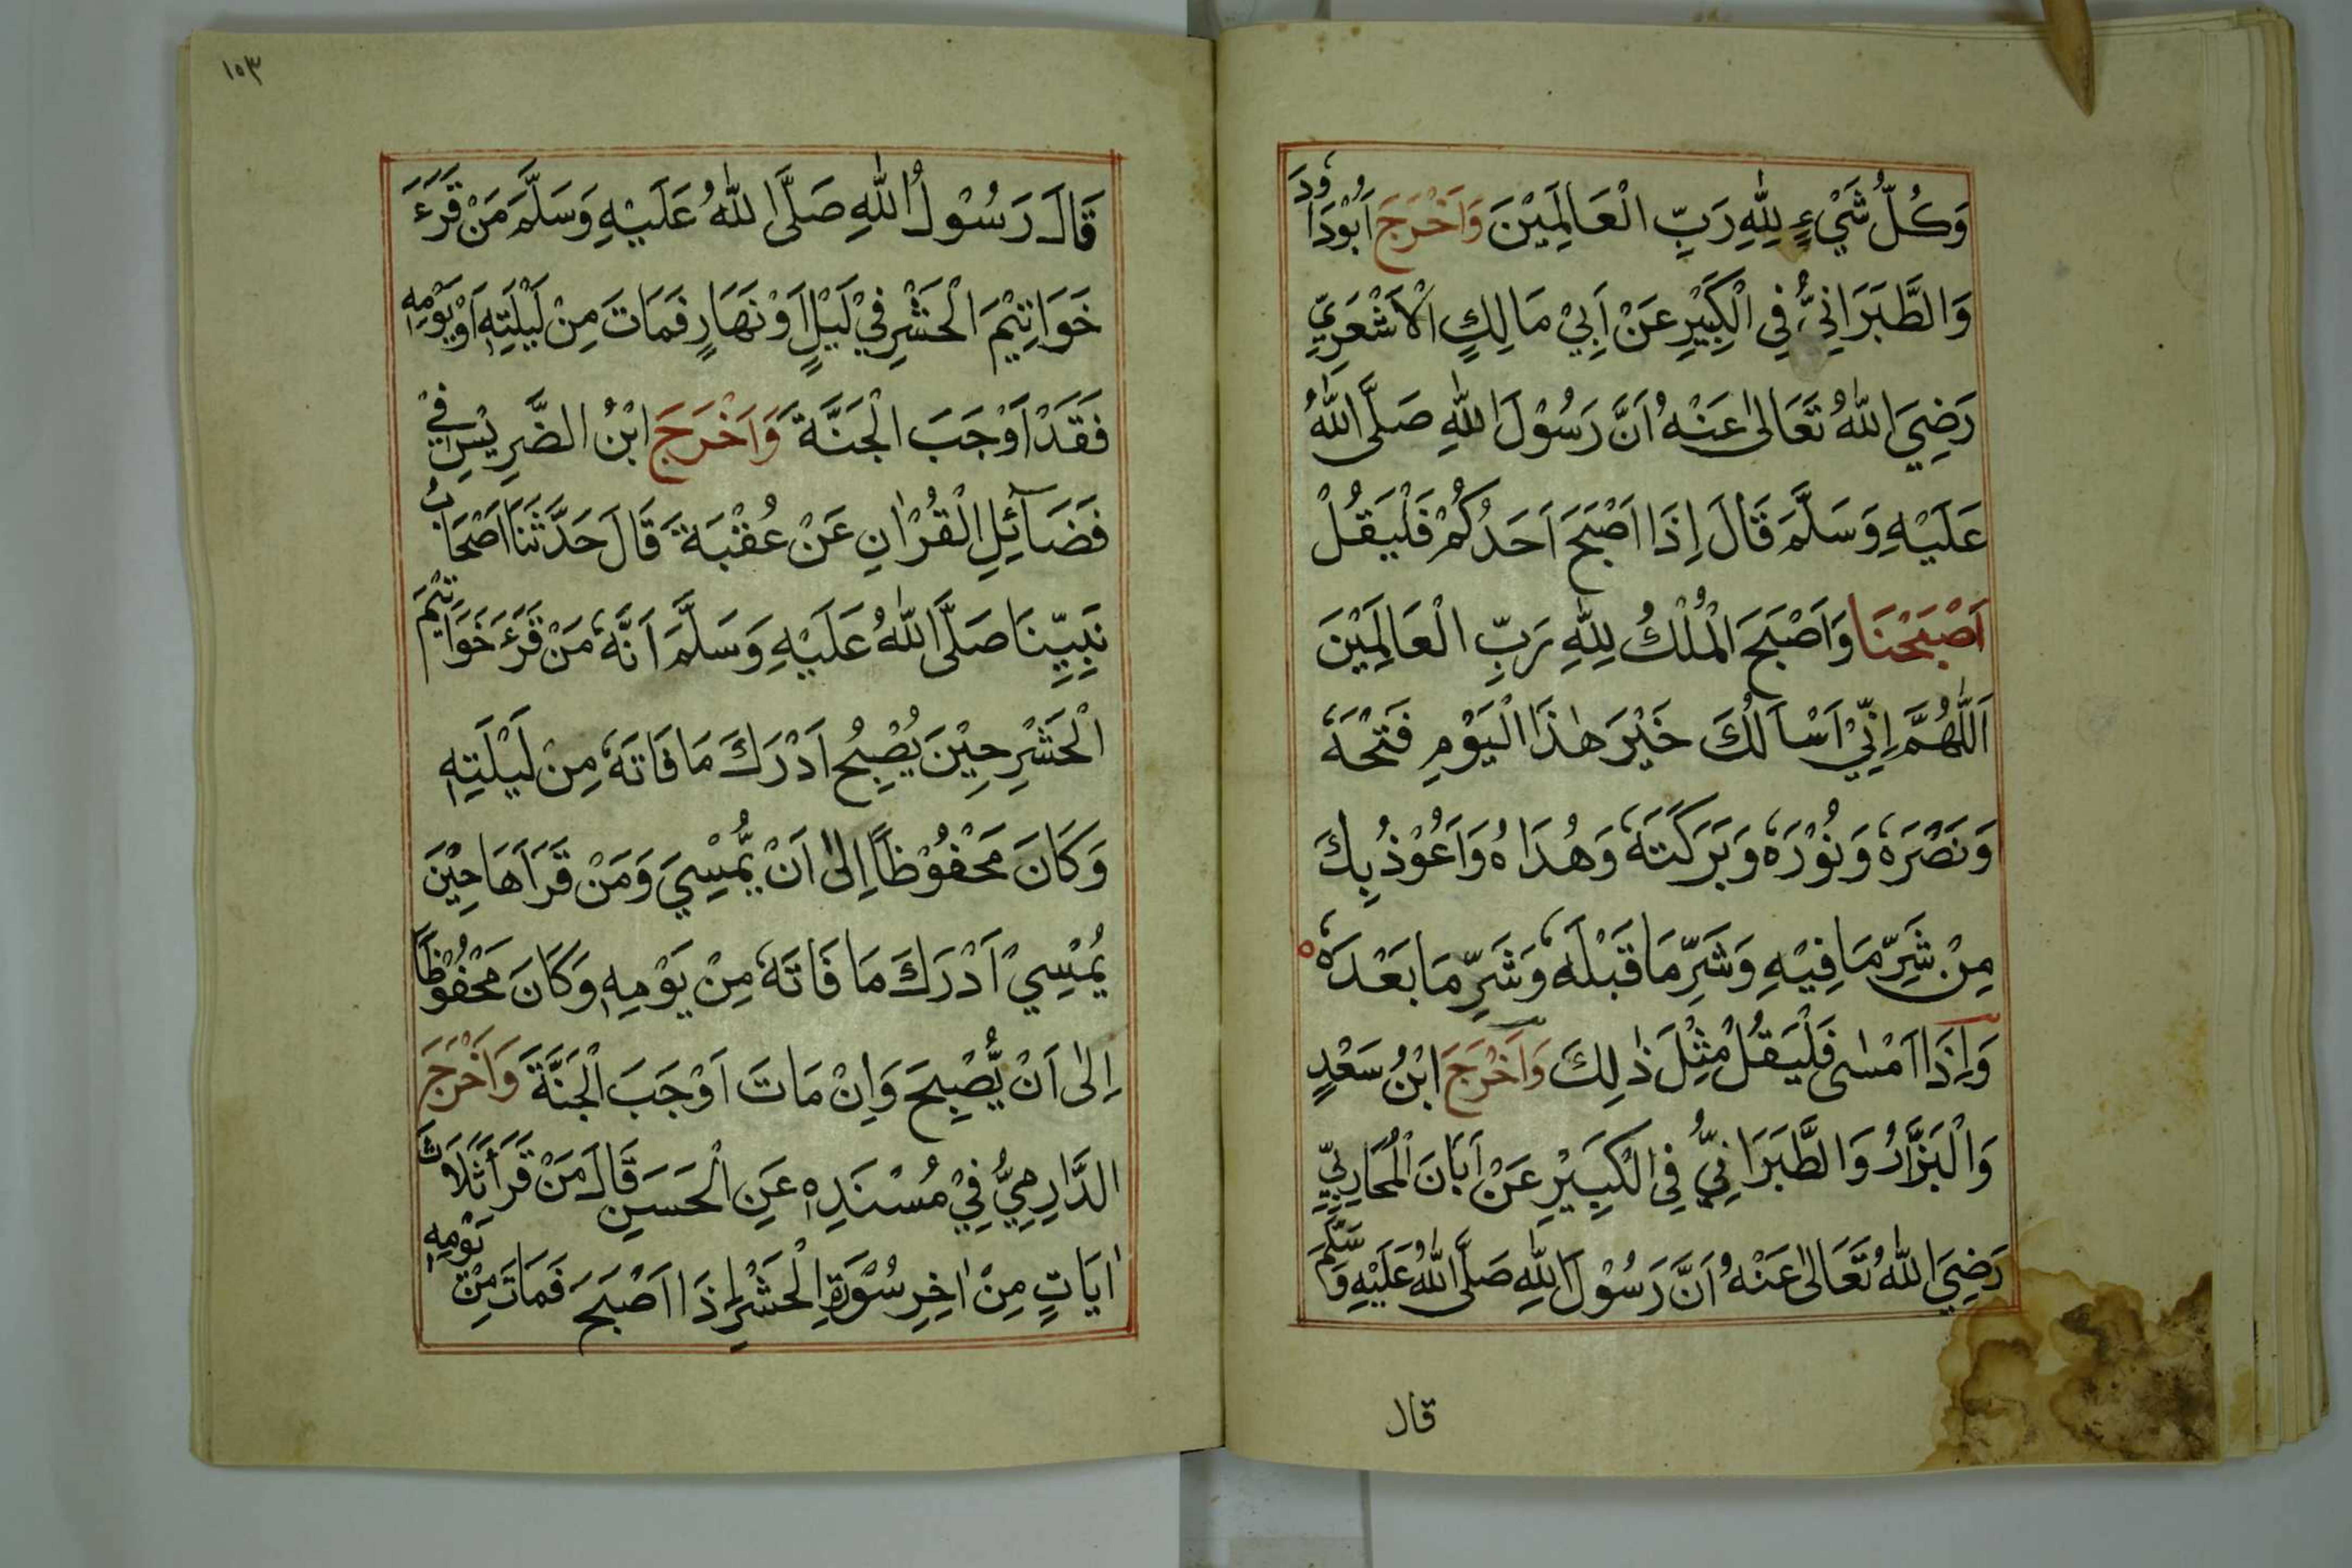 وَكُلُّ شَيْءٍ لِلّٰهِ رَبِّ الْعَالَمِيْنَ وَاَخْرَجَ اَبُوْدَاوٗدَ
وَالطَّبَرَانِيُّ فِي الْكَبِيْرِ عَنْ اَبِيْ مَالِكٍ الْاَشْعَرِيِّ
رَضِيَ اللّٰهُ تَعَالٰى عَنْهُ اَنَّ رَسُوْلَ اللّٰهِ صَلَّى اللّٰهُ
عَلَيْهِ وَسَلَّمَ قَالَ اِذَا اَصْبَحَ اَحَدُكُمْ فَلْيَقُلْ
اَصْبَحْنَا وَاَصْبَحَ الْمُلْكُ لِلّٰهِ رَبِّ الْعَالَمِيْنَ
اَللّٰهُمَّ اِنِّيْ اَسْاَلُكَ خَيْرَ هٰذَا الْيَوْمِ فَتْحَهٗ
وَنَصْرَهٗ وَنُوْرَهٗ وَبَرَكَتَهٗ وَهُدَاهُ وَاَعُوْذُ بِكَ
مِنْ شَرِّ مَا فِيْهِ وَشَرِّ مَا قَبْلَهٗ وَشَرِّ مَا بَعْدَهٗ
وَاِذَا اَمْسٰى فَلْيَقُلْ مِثْلَ ذٰلِكَ وَاَخْرَجَ ابْنُ سَعْدٍ
وَالْبَزَّارُ وَالطَّبَرَانِيُّ فِي الْكَبِيْرِ عَنْ اَبَانَ الْمُحَارِبِيِّ
رَضِيَ اللّٰهُ تَعَالٰى عَنْهُ اَنَّ رَسُوْلَ اللّٰهِ صَلَّى اللّٰهُ عَلَيْهِ وَسَلَّمَ
قال
١٥٣
قَالَ رَسُوْلُ اللّٰهِ صَلَّى اللّٰهُ عَلَيْهِ وَسَلَّمَ مَنْ قَرَءَ
خَوَاتِيْمَ الْحَشْرِ فِيْ لَيْلٍ اَوْ نَهَارٍ فَمَاتَ مِنْ لَيْلَتِهٖ اَوْ يَوْمِهٖ
فَقَدْ اَوْجَبَ الْجَنَّةَ وَاَخْرَجَ ابْنُ الضَّرِيْسِ فِيْ
فَضَآئِلِ الْقُرْاٰنِ عَنْ عُقْبَةَ قَالَ حَدَّثَنَا اَصْحَابُ
نَبِيِّنَا صَلَّى اللّٰهُ عَلَيْهِ وَسَلَّمَ اَنَّهٗ مَنْ قَرَءَ خَوَاتِيْمَ
الْحَشْرِ حِيْنَ يُصْبِحُ اَدْرَكَ مَا فَاتَهٗ مِنْ لَيْلَتِهٖ
وَكَانَ مَحْفُوْظًا اِلٰى اَنْ يُّمْسِيَ وَمَنْ قَرَاَهَا حِيْنَ
يُمْسِيْ اَدْرَكَ مَا فَاتَهٗ مِنْ يَوْمِهٖ وَكَانَ مَحْفُوْظًا
اِلٰى اَنْ يُّصْبِحَ وَاِنْ مَاتَ اَوْجَبَ الْجَنَّةَ وَاَخْرَجَ
الدَّارِمِيُّ فِيْ مُسْنَدِهٖ عَنِ الْحَسَنِ قَالَ مَنْ قَرَاَ ثَلَاثَ
اٰيَاتٍ مِنْ اٰخِرِ سُوْرَةِ الْحَشْرِ اِذَا اَصْبَحَ فَمَاتَ مِنْ يَوْمِهٖ